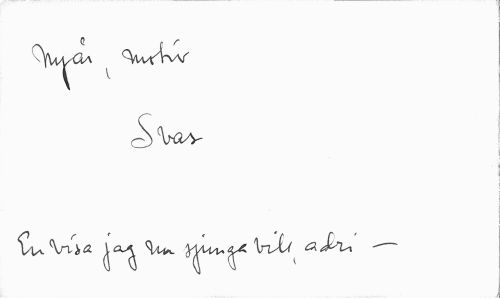 Nyår, motiv
Svar
En visa jag nu sjunga vill, adri —